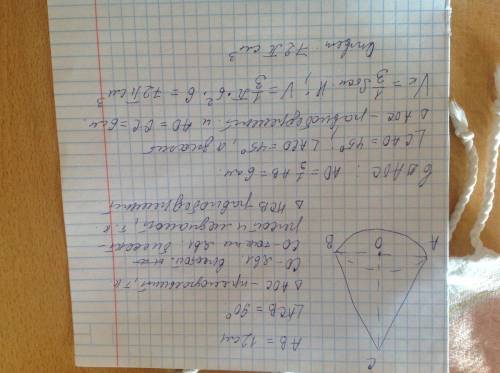 C
A
O
B
AB = 12см
∠ACB = 90°
△AOC - прямоугольный, т.к.
CO - явл. высотой и т.к.
CO также явл биссект-
рисой и медианой, т.к.
△ACB - равнобедренный
В △AOC: AO = 1/2 AB = 6 см.
∠CAO = 45°, ∠ACO = 45°, а значит
△AOC - равнобедренный. и AO = OC = 6см
Vк = 1/3 Sосн H; V = 1/3 π · 6² · 6 = 72π см³
Ответ 72π см³